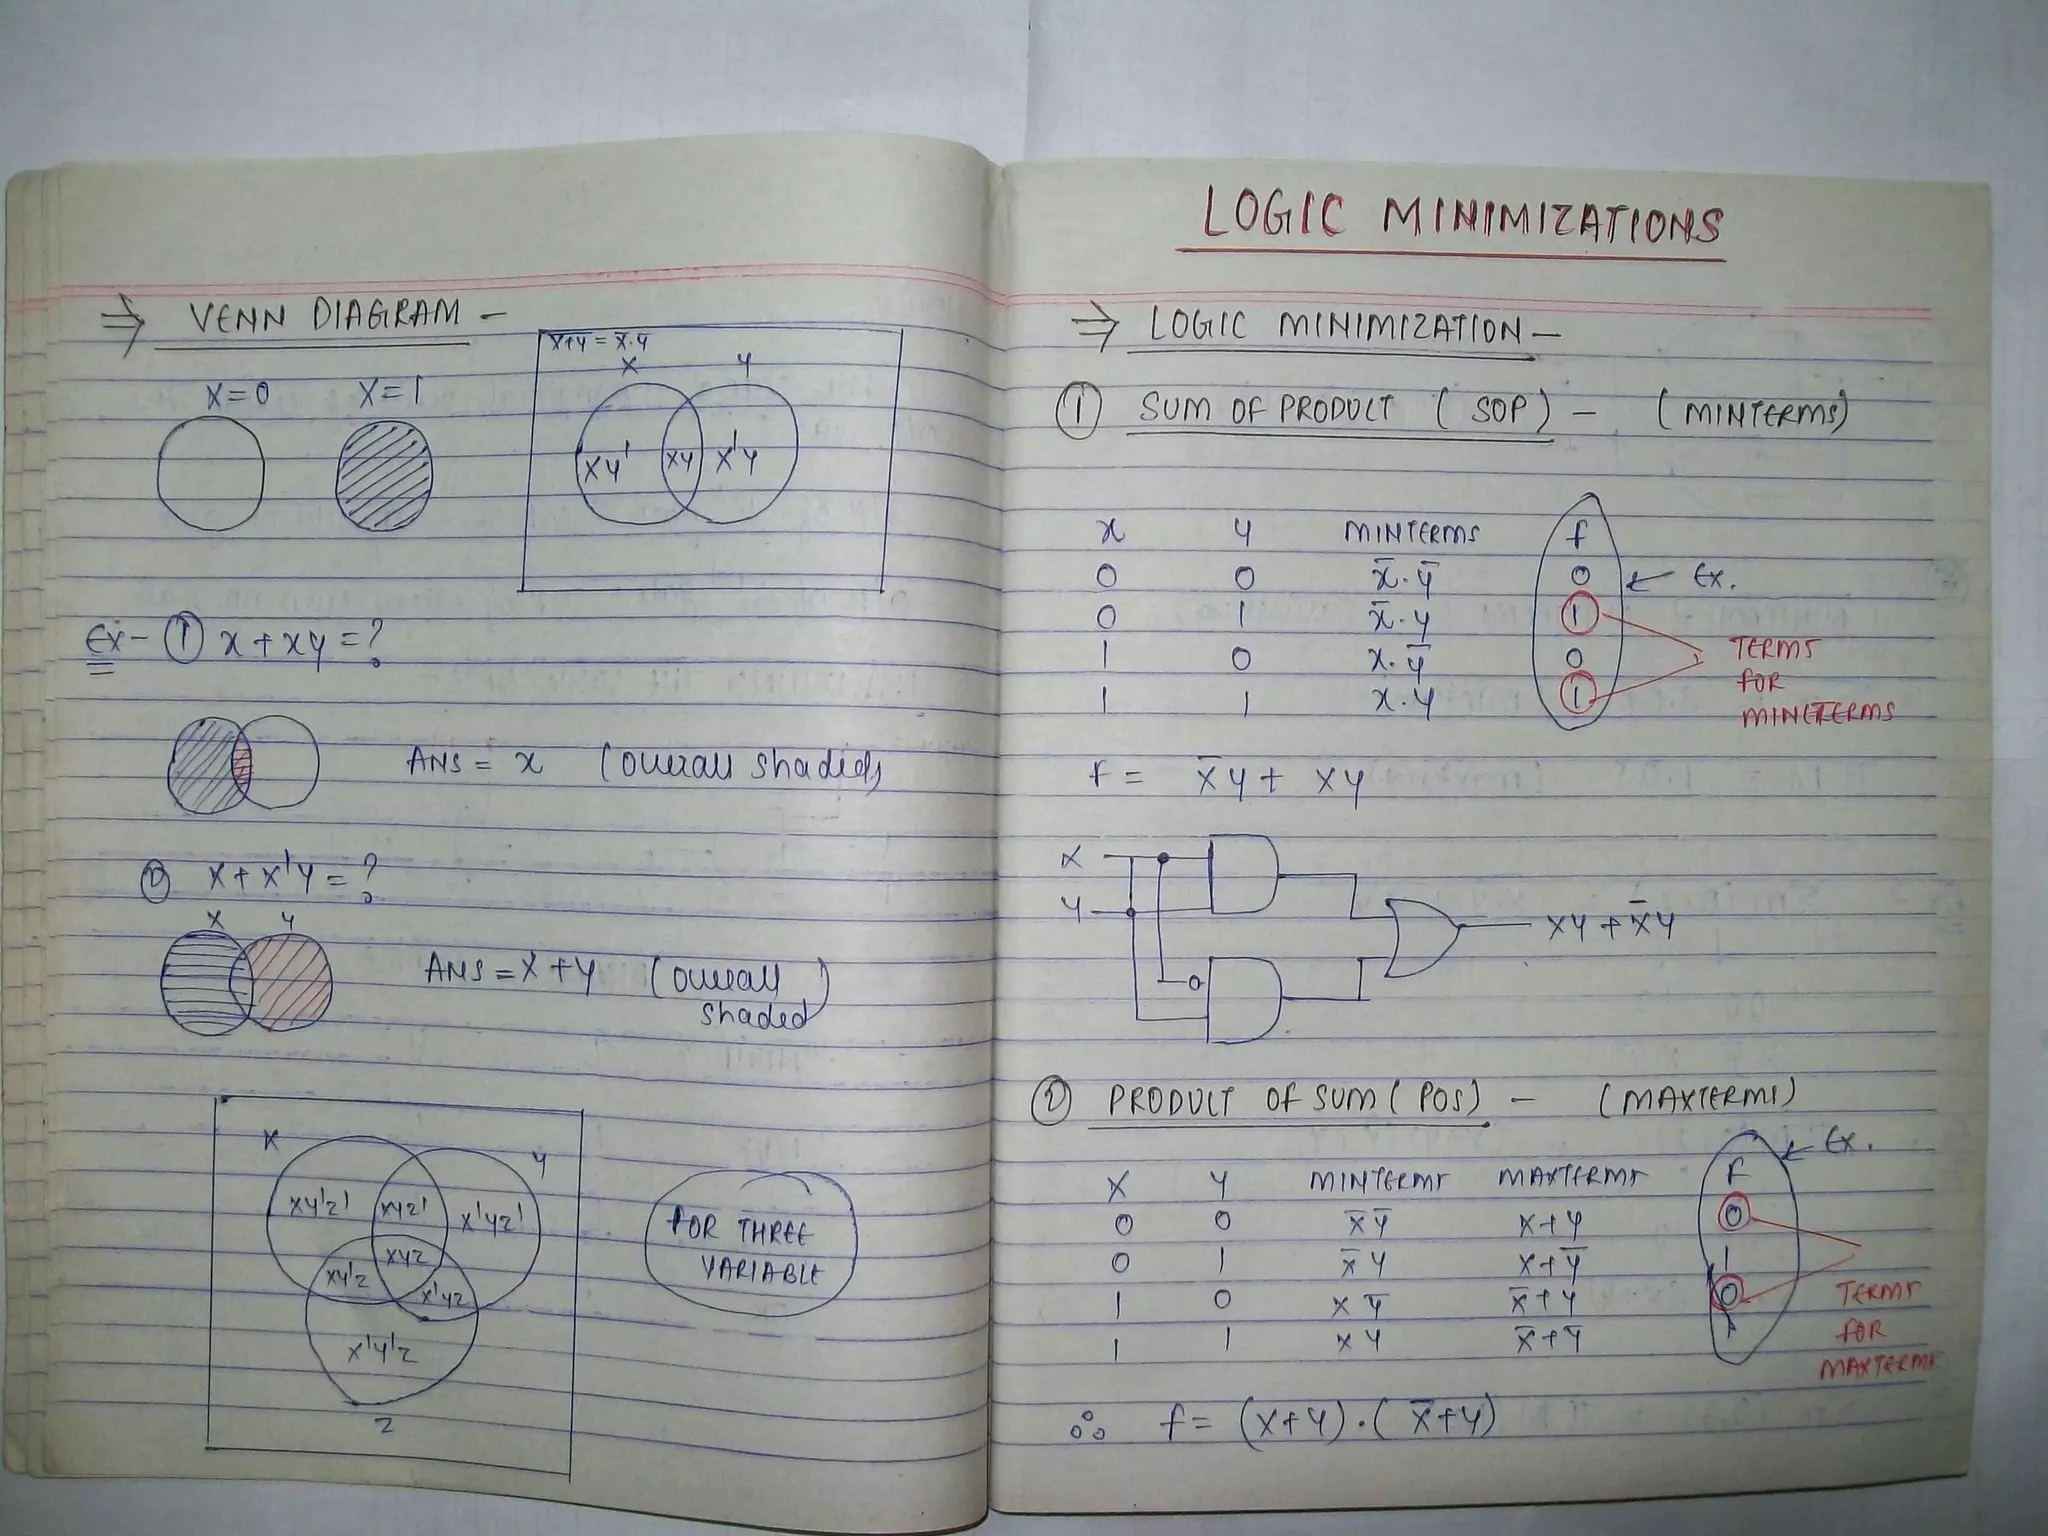 ⇒ VENN DIAGRAM -
X=0 X=1
X+Y = X̅.Y̅
X Y
XY' XY X'Y
Ex- ① x + xy = ?
ANS = x (overall shaded)
② X + X'Y = ?
X Y
ANS = X + Y (overall shaded)
X Y
XY'Z' XYZ' X'YZ'
XYZ
XY'Z X'YZ
X'Y'Z
Z
FOR THREE
VARIABLE
LOGIC MINIMIZATIONS
⇒ LOGIC MINIMIZATION -
① SUM OF PRODUCT (SOP) - (MINTERMS)
x y MINTERMS f
0 0 x̅.y̅ 0 ← Ex.
0 1 x̅.y 1
1 0 x.y̅ 0
1 1 x.y 1
TERMS
FOR
MINETERMS
F = X̅Y + XY
X
Y
XY + X̅Y
② PRODUCT OF SUM (POS) - (MAXTERMS)
← Ex.
X Y MINTERMS MAXTERMS F
0 0 X̅Y̅ X+Y 0
0 1 X̅Y X+Y̅ 1
1 0 XY̅ X̅+Y 0
1 1 XY X̅+Y̅ 1
TERMS
FOR
MAXTERMS
∴ f = (X+Y).(X̅+Y)